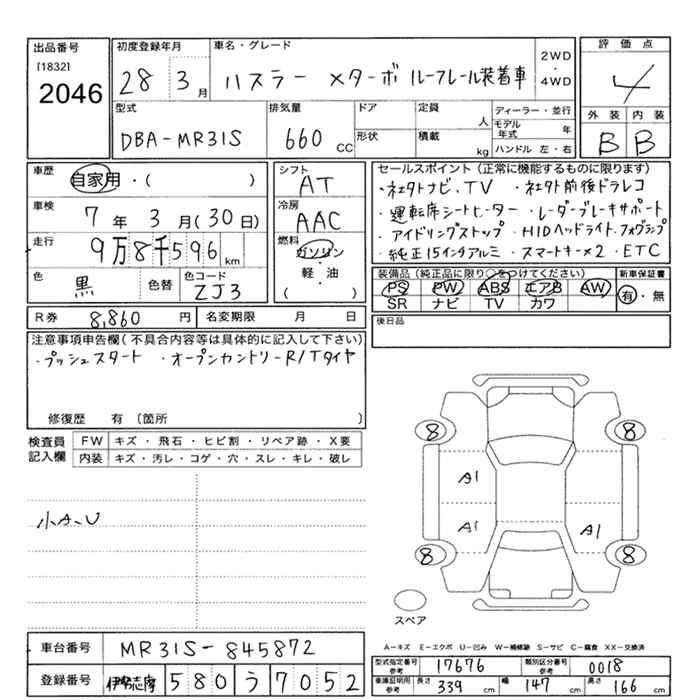 出品番号 初度登録年月 車名・グレード 評価点
[1832]
2046
28 3月 ハスラー Xターボ ルーフレール装着車 2WD・4WD 4
型式 排気量 ドア 定員 人 ディーラー・並行 外装 内装
DBA-MR31S 660CC 形状 積載 kg モデル年式 年 B B
ハンドル 左・右
車歴 自家用・( )
車検 7年3月(30日)
走行 9万8千596km
色 黒 色替 色コード ZJ3
シフト AT
冷房 AAC
燃料 ガソリン
軽・油
( )
セールスポイント(正常に機能するものに限ります)
・社外ナビ、TV ・社外前後ドラレコ
・運転席シートヒーター ・レーダーブレーキサポート
・アイドリングストップ ・HIDヘッドライト、フォグランプ
・純正15インチアルミ ・スマートキー×2 ・ETC
装備品(純正品に限り○をつけてください) 新車保証書
PS PW ABS エアB AW 有・無
SR ナビ TV カワ
R券 8,860円 名変期限 月 日
後日品
注意事項申告欄(不具合内容等は具体的に記入して下さい)
・プッシュスタート ・オープンカントリーR/Tタイヤ
修復歴 有 (箇所 )
検査員記入欄 FW キズ・飛石・ヒビ割・リペア跡・X要
内装 キズ・汚レ・コゲ・穴・スレ・キレ・破レ
小A、U
8 8
A1
A1 A1
8 8
スペア
A-キズ E-エクボ U-凹み W-補修跡 S-サビ C-腐食 XX-交換済
車台番号 MR31S-845872
登録番号 伊勢志摩 580 う 7052
型式指定番号 参考 17676 類別区分番号 参考 0018
車庫証明用 参考 長さ 339cm 幅 147cm 高さ 166cm